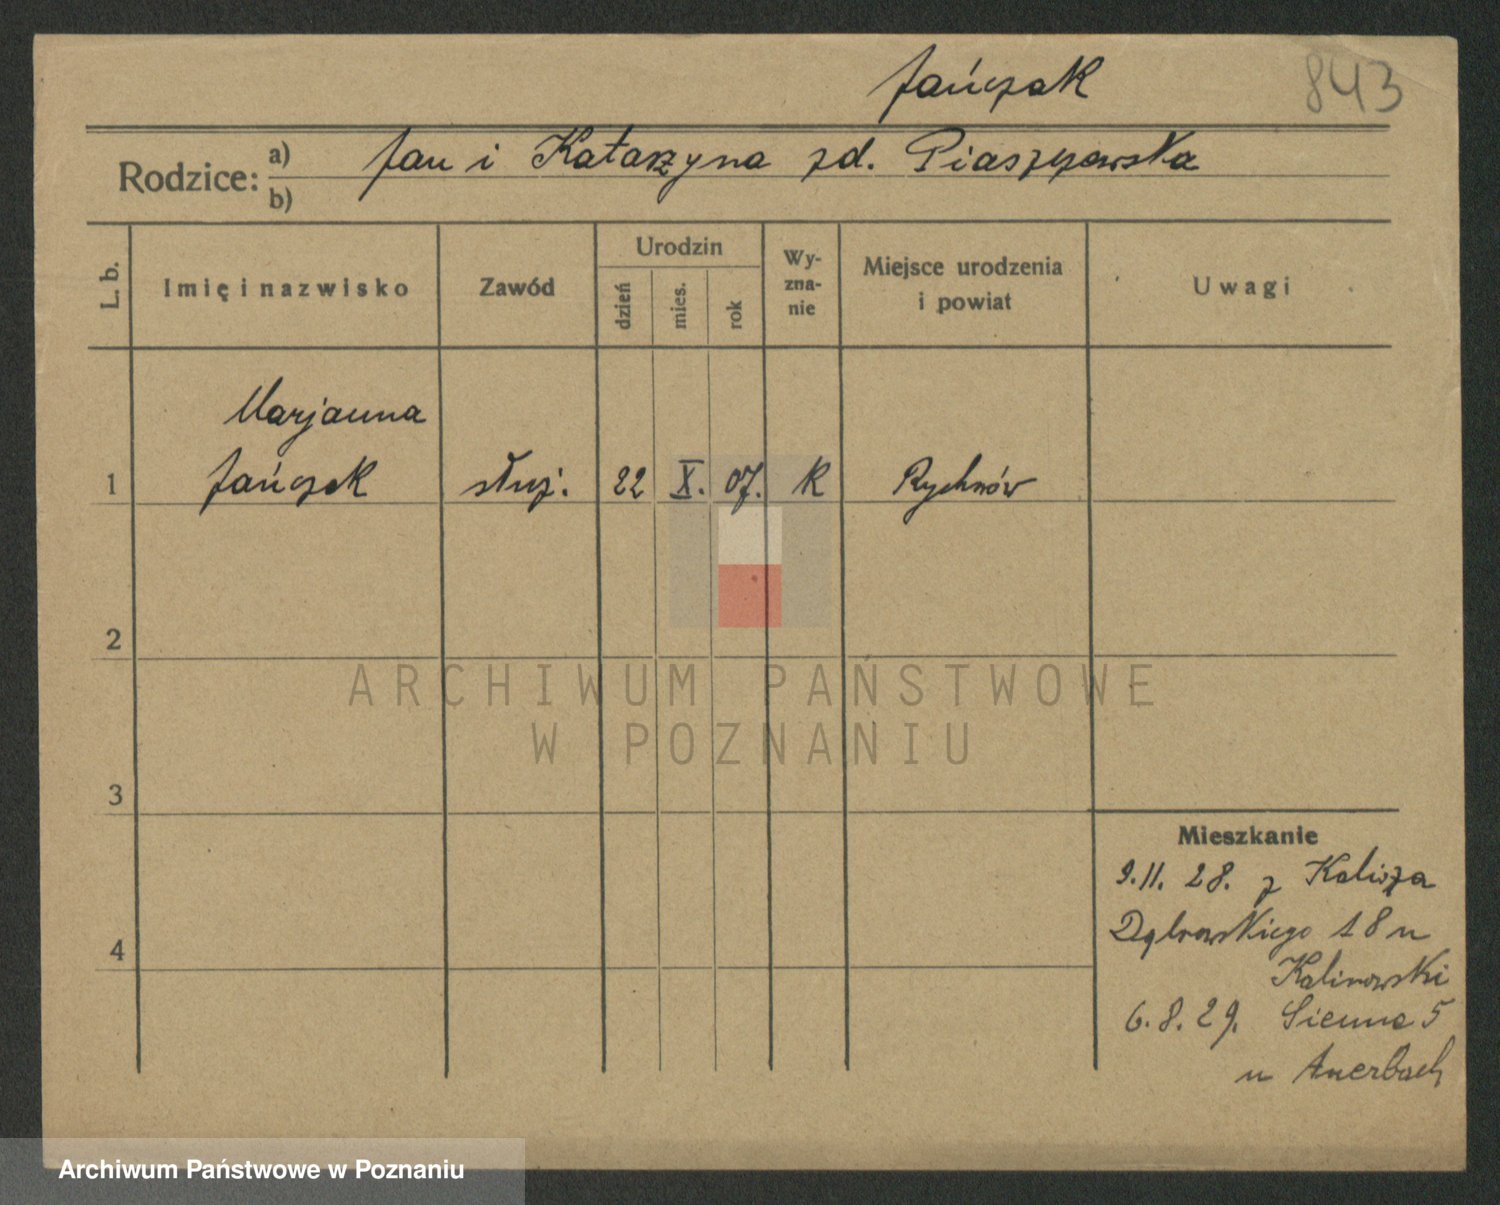 Jańczak
843
Rodzice: a) Jan i Katarzyna zd. Piaszczowska
b)
L. b.
Imię i nazwisko
Zawód
Urodzin
dzień
mies.
rok
Wy-
zna-
nie
Miejsce urodzenia
i powiat
Uwagi
Marjanna
1 Jańczak służ. 22 X. 07. K Rychnów
2
3
4
Mieszkanie
9.11. 28. z Kalisza
Dąbrowskiego 18 u
Kalinowski
6.8.29. Sienna 5
u Auerbach
ARCHIWUM PAŃSTWOWE
W POZNANIU
Archiwum Państwowe w Poznaniu